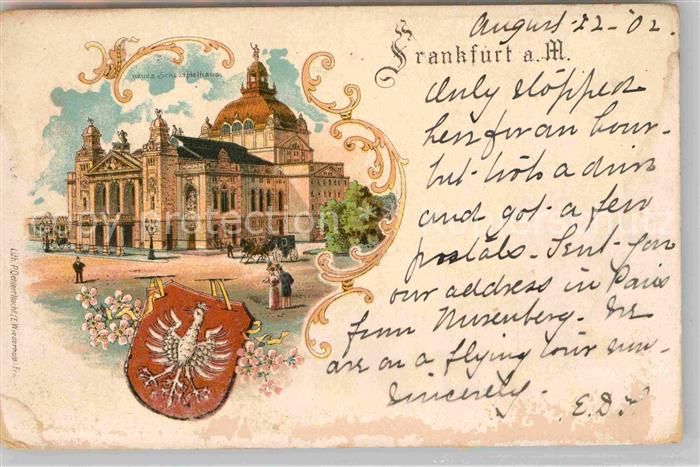 August-22-02.
Frankfurt a. M.
neues Schauspielhaus
Only stopped
here for an hour-
but took a drive
and got a few
postals. Sent you
our address in Paris
from Nuremberg. We
are on a flying tour now.
Sincerely.
E.D.
copyright protection
Lith. E. Wiederhold